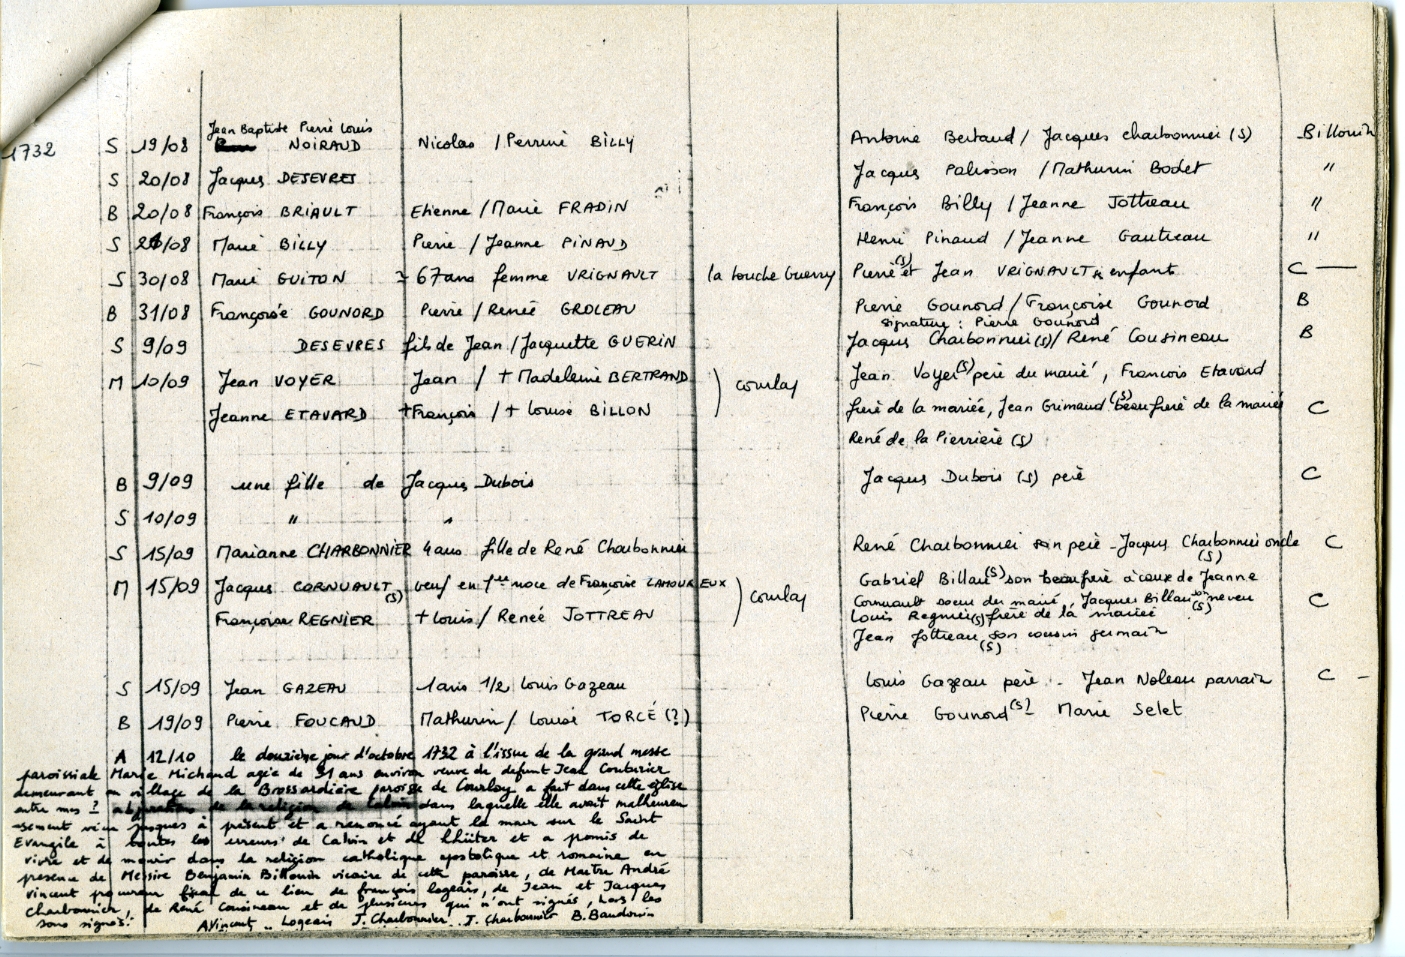 Jean Baptiste Pierre Louis
1732 S 19/08 NOIRAUD Nicolas / Perrine BILLY Antoine Bertaud / Jacques charbonnier (S) Billouin
S 20/08 Jacques DESEVRES Jacques Palisson / Mathurin Bodet "
B 20/08 François BRIAULT Etienne / Marie FRADIN François Billy / Jeanne Jottreau "
S /08 Marie BILLY Pierre / Jeanne PINAUD Henri Pinaud / Jeanne Gautreau "
S 30/08 Marie GUITON ≃ 67 ans femme VRIGNAULT la touche Guerry Pierre (S) et Jean VRIGNAULT enfants C —
B 31/08 Françoise GOUNORD Pierre / Renée GROLEAU Pierre Gounord / Françoise Gounord B
signature : Pierre Gounord
S 9/09 DESEVRES fils de Jean / Jacquette GUERIN Jacques Charbonnier (S) / René Cousineau B
M 10/09 Jean VOYER Jean / + Madeleine BERTRAND ) courlay Jean Voyer (S) père du marié, François Etavard
Jeanne ETAVARD + François / + Louise BILLON frère de la mariée, Jean Grimaud (S) beaufrère de la mariée C
René de la Pierrière (S)
B 9/09 une fille de Jacques Dubois Jacques Dubois (S) père C
S 10/09 " "
S 15/09 Marianne CHARBONNIER 4 ans fille de René Charbonnier René Charbonnier son père - Jacques Charbonnier oncle (S) C
M 15/09 Jacques CORNUAULT (S) veuf en 1ère noce de Françoise LAMOUREUX ) courlay Gabriel Billau (S) son beaufrère à cause de Jeanne
Cornuault soeur du marié, Jacques Billau son neveu (S) C
Françoise REGNIER + Louis / Renée JOTTREAU Louis Regnier (S) frère de la mariée
Jean Jottreau son cousin germain (S)
S 15/09 Jean GAZEAU 1 ans 1/2 Louis Gazeau Louis Gazeau père - Jean Noleau parrain C -
B 19/09 Pierre FOUCAUD Mathurin / Louise TORCÉ (?) Pierre Gounord (S) Marie Selet
A 12/10 le douzième jour d'octobre 1732 à l'issue de la grand messe
paroissiale Marie Michaud agée de 31 ans environ veuve de defunt Jean Couturier
demeurant au village de la Brossardière paroisse de Courlay a fait dans cette église
entre mes ? abjuration de la religion de Calvin dans laquelle elle avait malheureu
-sement vécu jusques à présent et a renoncé ayant la main sur le Saint
Evangile à toutes les erreurs de Calvin et de Lhüter et a promis de
vivre et de mourir dans la religion catholique apostolique et romaine en
presence de Messire Benjamin Billouin vicaire de cette paroisse, de Maitre André
vincent procureur fiscal de ce lieu de françois logeais, de Jean et Jacques
Charbonnier, de René Cousineau et de plusieurs qui n'ont signés, hors les
sous signés. AVincent - Logeais J. Charbonnier . J. Charbonnier B. Baudouin